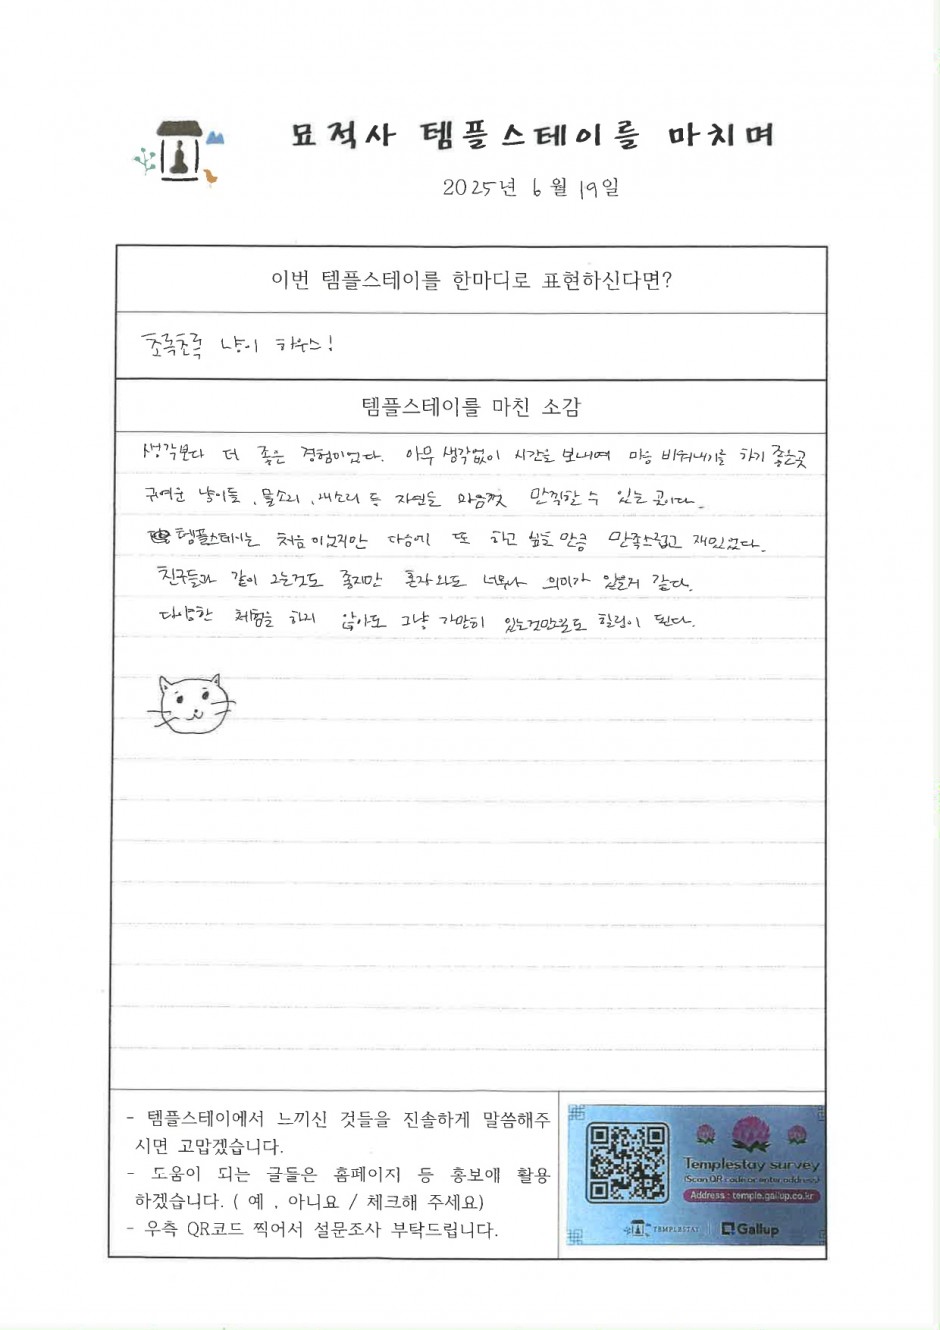 묘적사 템플스테이를 마치며
2025년 6월 19일
이번 템플스테이를 한마디로 표현하신다면?
초록초록 냥이 하우스!
템플스테이를 마친 소감
생각보다 더 좋은 경험이었다. 아무 생각없이 시간을 보내며 마음 비워내기를 하기 좋은곳
귀여운 냥이들, 물소리, 새소리 등 자연을 마음껏 만끽할 수 있는 곳이다.
템플스테이는 처음이었지만 다음에 또 하고 싶을 만큼 만족스럽고 재밌었다.
친구들과 같이 오는것도 좋지만 혼자와도 너무나 의미가 있을거 같다.
다양한 체험을 하지 않아도 그냥 가만히 있는것만으로도 힐링이 된다.
- 템플스테이에서 느끼신 것들을 진솔하게 말씀해주
시면 고맙겠습니다.
- 도움이 되는 글들은 홈페이지 등 홍보에 활용
하겠습니다. ( 예 , 아니요 / 체크해 주세요)
- 우측 QR코드 찍어서 설문조사 부탁드립니다.
Templestay survey
(Scan QR code or enter address)
Address : temple.gallup.co.kr
TEMPLESTAY
Gallup